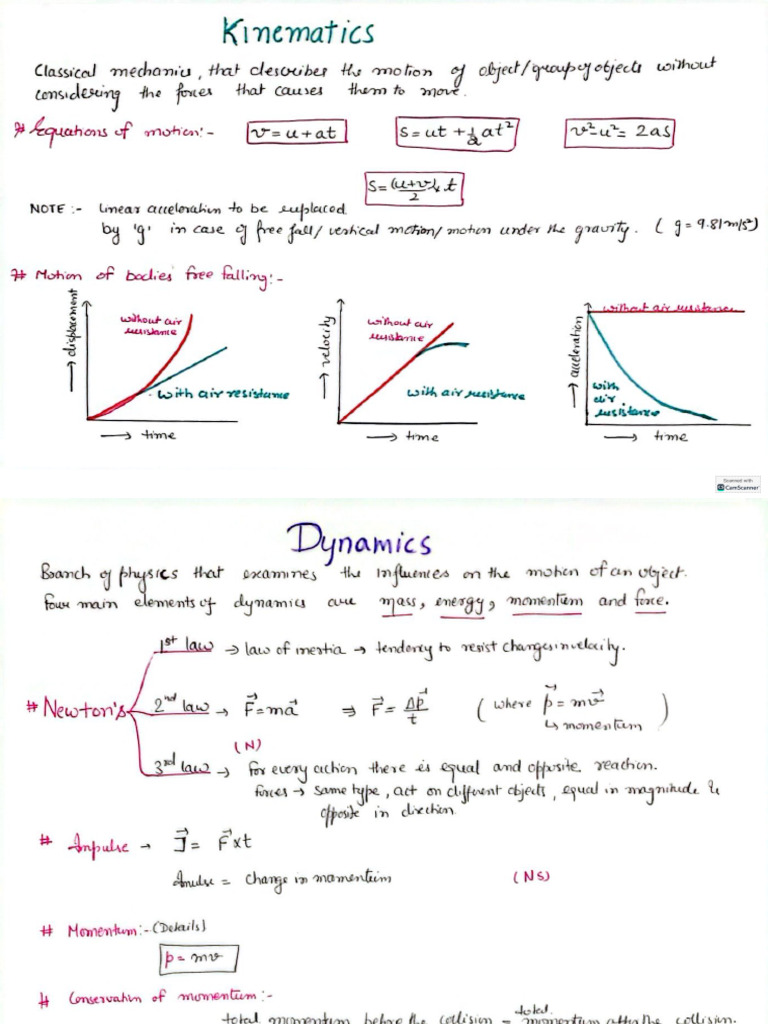 Kinematics
Classical mechanics, that describes the motion of object/group of objects without
considering the forces that causes them to move.
# Equations of motion:- v = u + at s = ut + 1/2 at² v²-u² = 2as
s = (u+v)/2 × t
NOTE :- linear acceleration to be replaced
by 'g' in case of free fall/ vertical motion/ motion under the gravity. ( g = 9.81 m/s²)
# Motion of bodies free falling:-
→ displacement
without air
resistance
with air resistance
→ time
→ velocity
without air
resistance
with air resistance
→ time
→ acceleration
without air resistance
with
air
resistance
→ time
Scanned with
CS CamScanner
Dynamics
Branch of physics that examines the influences on the motion of an object.
Four main elements of dynamics are mass, energy, momentum and force.
# Newton's
1st law → law of inertia → tendency to resist changes in velocity.
2nd law → F⃗ = ma⃗ ⇒ F⃗ = Δp⃗/t ( where p⃗ = mv⃗ )
↳ momentum
(N)
3rd law → for every action there is equal and opposite reaction.
forces → same type, act on different objects, equal in magnitude &
opposite in direction
# Impulse → J⃗ = F⃗ x t
Imulse = change in momentum (NS)
# Momentum:- (Details)
p = mv
# Conservation of momentum:-
total momentum before the collision = total momentum after the collision.